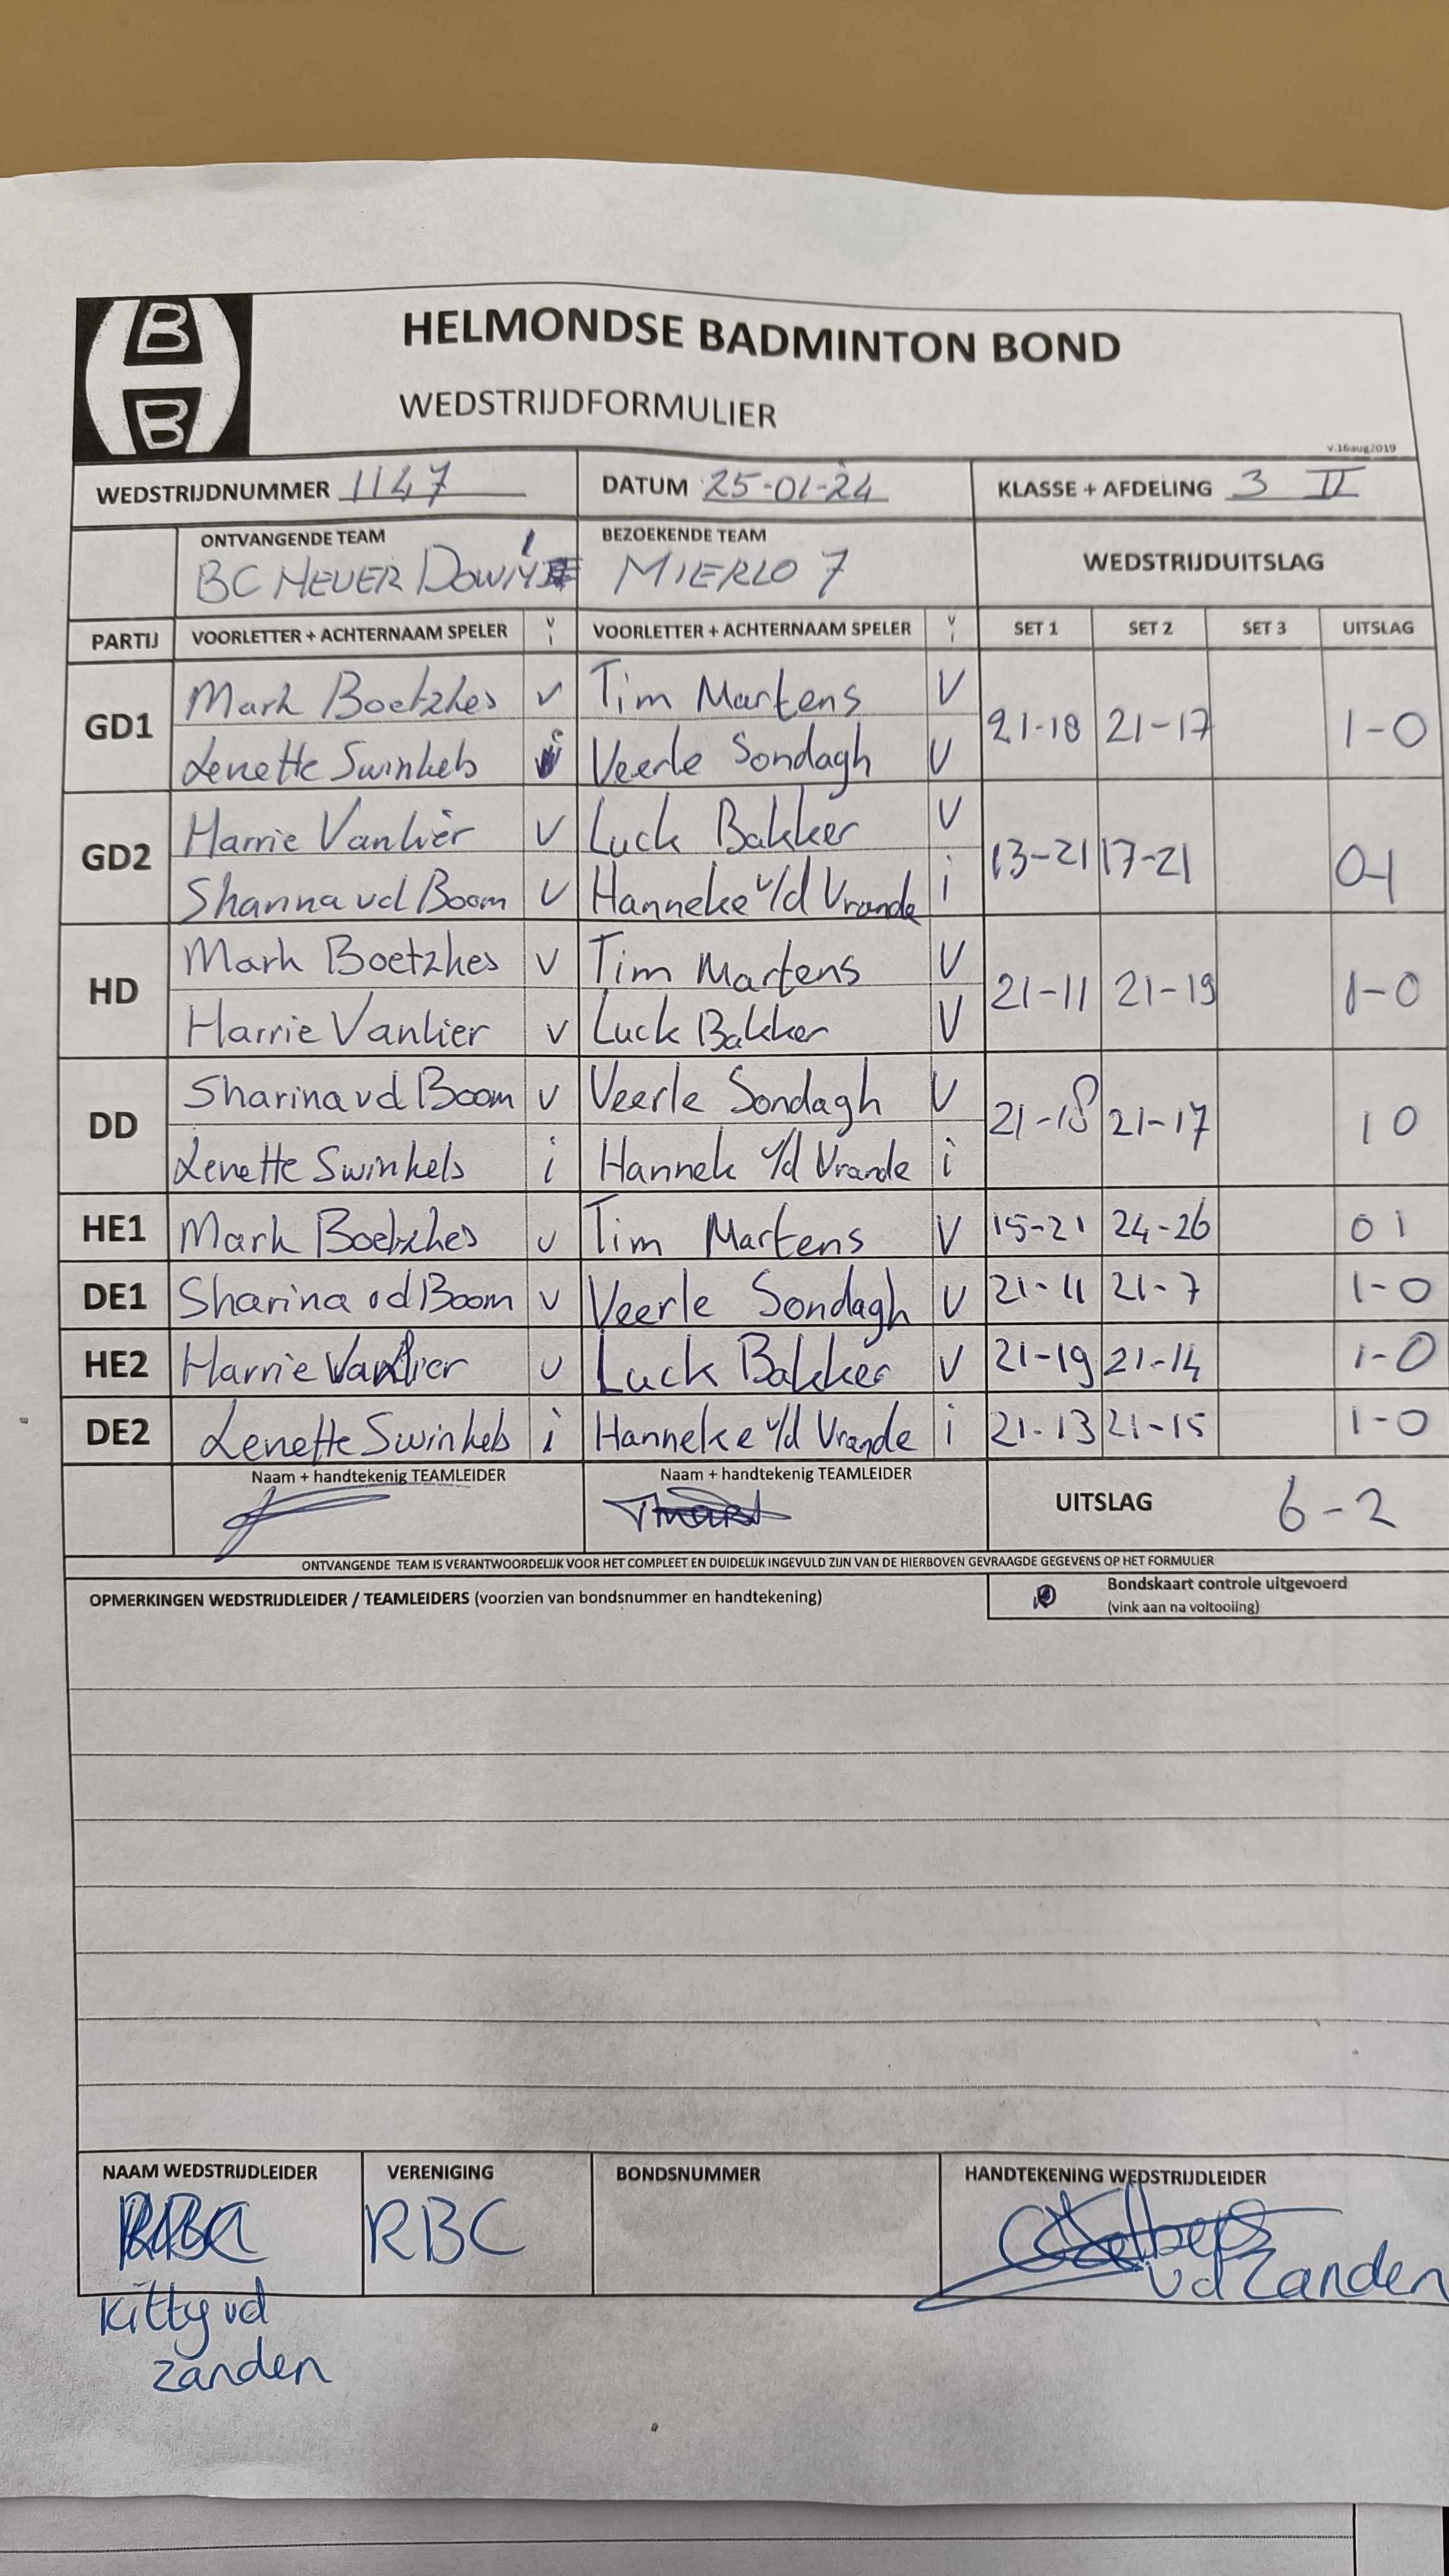 B
B
HELMONDSE BADMINTON BOND
WEDSTRIJDFORMULIER
v.16aug2019
WEDSTRIJDNUMMER 1147 DATUM 25-01-24 KLASSE + AFDELING 3 II
ONTVANGENDE TEAM BEZOEKENDE TEAM WEDSTRIJDUITSLAG
BC MEVER DOWN 1 MIERLO 7
PARTIJ VOORLETTER + ACHTERNAAM SPELER V I VOORLETTER + ACHTERNAAM SPELER V I SET 1 SET 2 SET 3 UITSLAG
GD1 Mark Boetzkes v Tim Martens V 21-18 21-17 1-0
Lenette Swinkels i Veerle Sondagh V
GD2 Harrie Vanlier V Luck Bakker V 13-21 17-21 0-1
Sharina vd Boom V Hanneke v/d Vrande i
HD Mark Boetzkes v Tim Martens V 21-11 21-19 1-0
Harrie Vanlier v Luck Bakker V
DD Sharina vd Boom v Veerle Sondagh V 21-18 21-17 1 0
Lenette Swinkels i Hannek v/d Vrande i
HE1 Mark Boetzkes v Tim Martens V 15-21 24-26 0 1
DE1 Sharina vd Boom v Veerle Sondagh V 21-11 21-7 1-0
HE2 Harrie Vanlier v Luck Bakker V 21-19 21-14 1-0
DE2 Lenette Swinkels i Hanneke v/d Vrande i 21-13 21-15 1-0
Naam + handtekenig TEAMLEIDER Naam + handtekenig TEAMLEIDER UITSLAG 6-2
ONTVANGENDE TEAM IS VERANTWOORDELIJK VOOR HET COMPLEET EN DUIDELIJK INGEVULD ZIJN VAN DE HIERBOVEN GEVRAAGDE GEGEVENS OP HET FORMULIER
OPMERKINGEN WEDSTRIJDLEIDER / TEAMLEIDERS (voorzien van bondsnummer en handtekening) Bondskaart controle uitgevoerd
(vink aan na voltooiing)
NAAM WEDSTRIJDLEIDER VERENIGING BONDSNUMMER HANDTEKENING WEDSTRIJDLEIDER
RBC
vd Zanden
Kitty vd
zanden